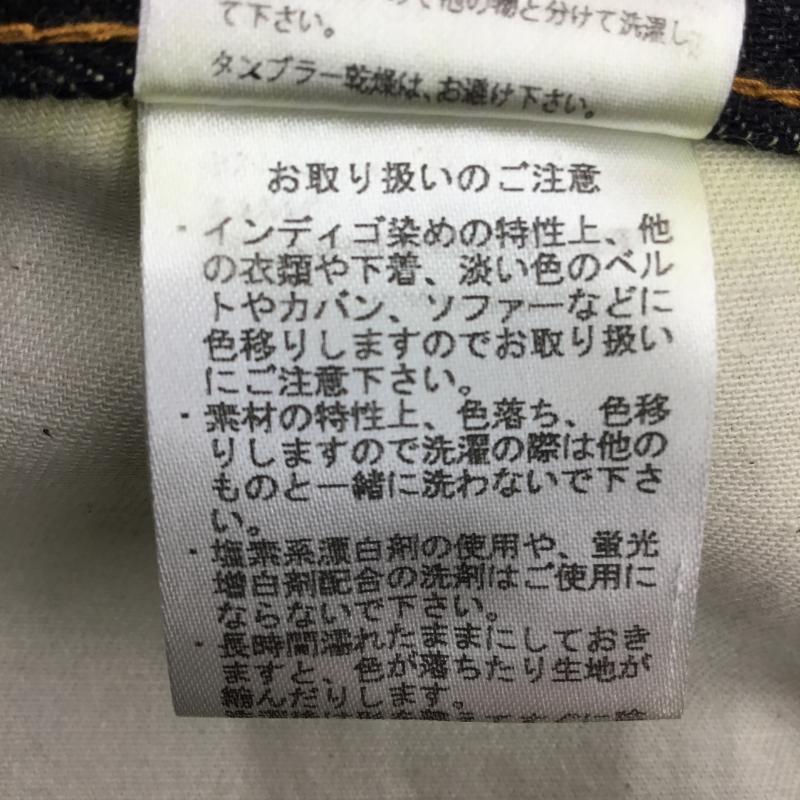 他の物と分けて洗濯し
て下さい。
タンブラー乾燥は、お避け下さい。
お取り扱いのご注意
・インディゴ染めの特性上、他
の衣類や下着、淡い色のベル
トやカバン、ソファーなどに
色移りしますのでお取り扱い
にご注意下さい。
・素材の特性上、色落ち、色移
りしますので洗濯の際は他の
ものと一緒に洗わないで下さ
い。
・塩素系漂白剤の使用や、蛍光
増白剤配合の洗剤はご使用に
ならないで下さい。
・長時間濡れたままにしておき
ますと、色が落ちたり生地が
縮んだりします。